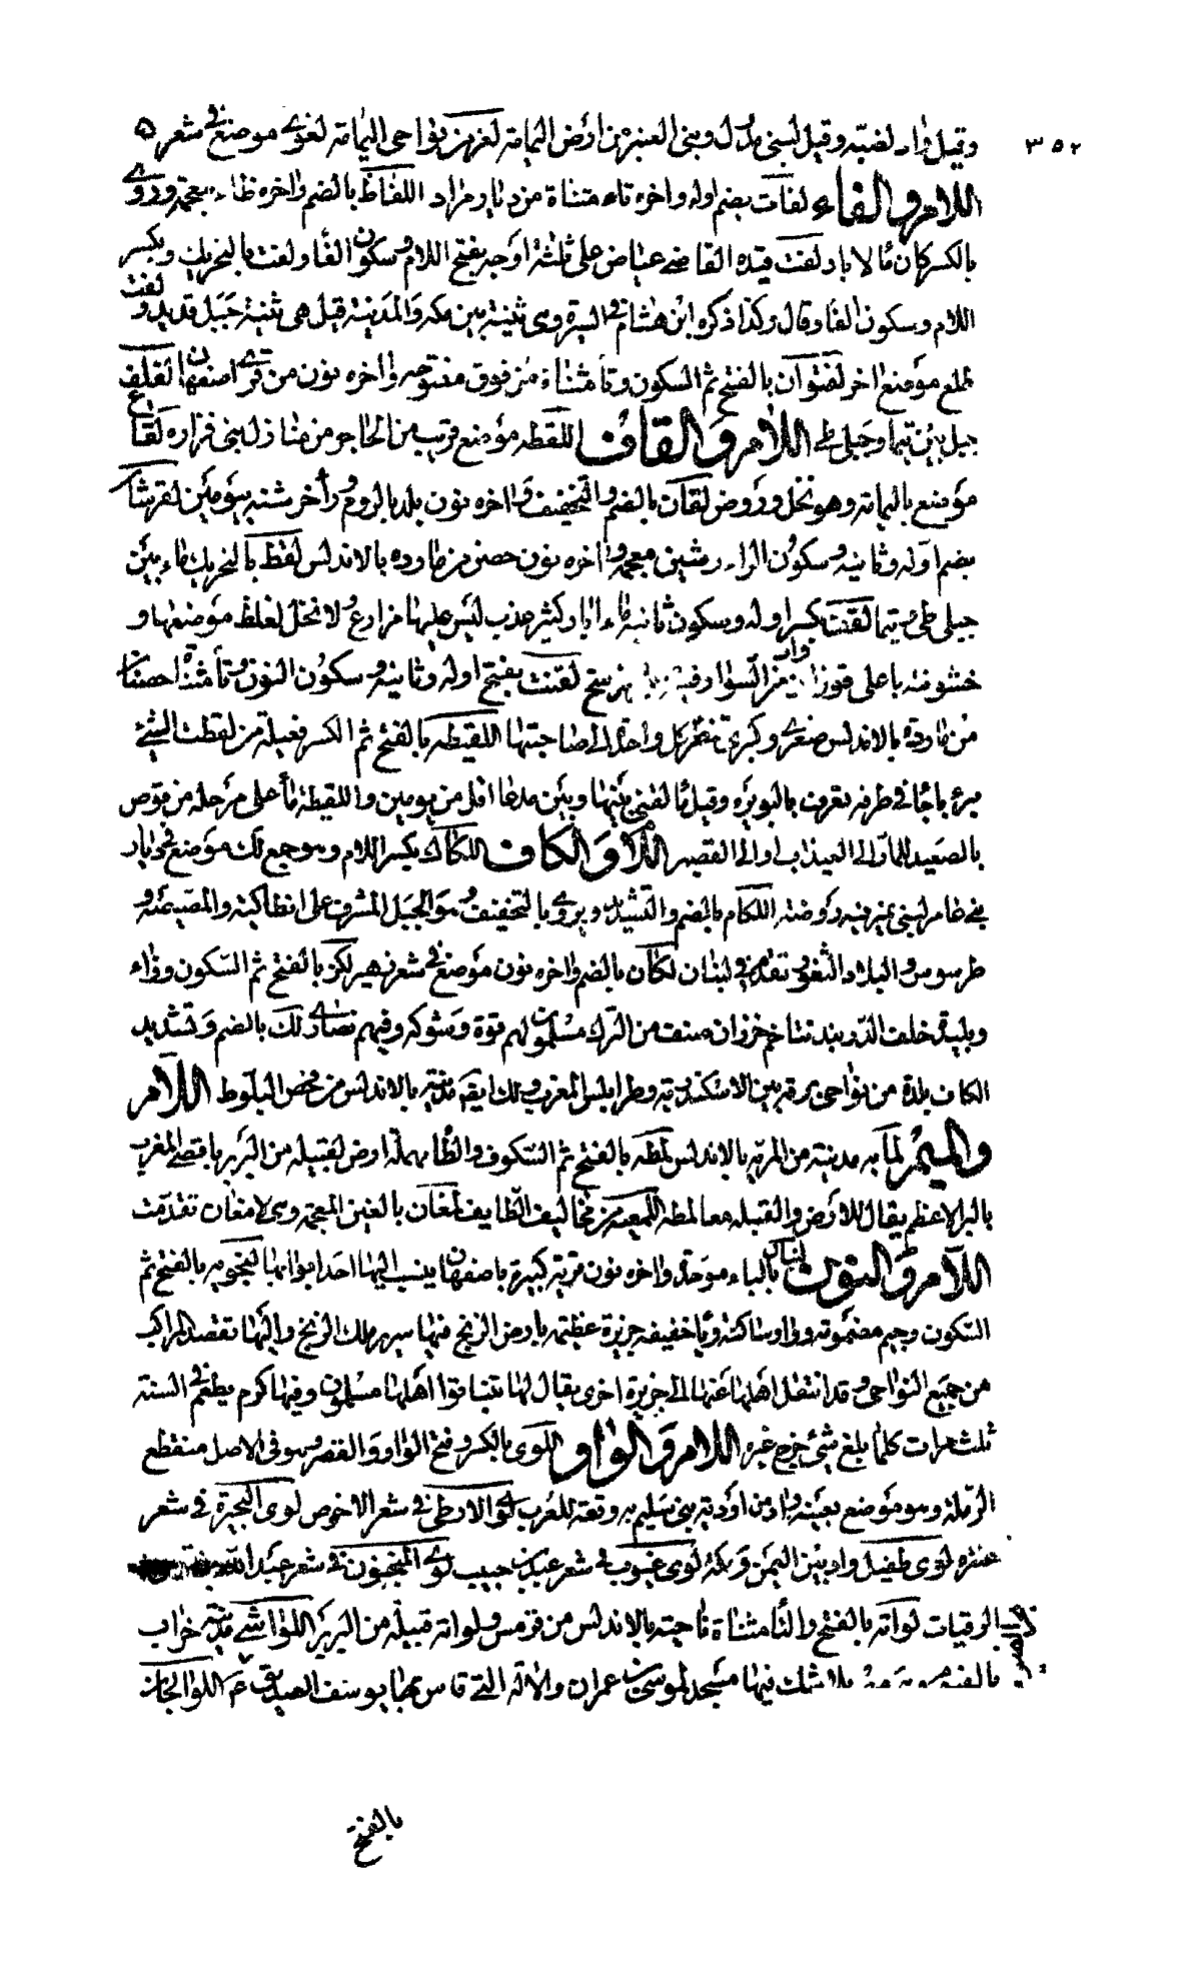 ٣٥٢
وقيل واد لضبّه وقيل لبنى هذيل وبنى العنبر من ارض اليمامة لغزهز بنواحى اليمامة لغوى موضع فى شعر ه
اللام والفاء لفات بضم اوله واخره تاء مثناة من ديار مراد اللفاظ بالضم واخره ظاء معجمة وروى
بالكسر كان مالا باد لفت قيده القاضى عياض على ثلثة اوجه بفتح اللام وسكون الفا ولفت بالتحريك وبكسر
اللام وسكون الفا وقال وكذا ذكره ابن هشام فى السيرة وهى ثنية بين مكة والمدينة قيل هى ثنية جبل قديد ولفت
طلع موضع اخر لفتوان بالفتح ثم السكون وتا مثناة من فوق مفتوحه واخره نون من قرى اصفهان لفلف
جبل بين تيما وجبلى طى اللام والقاف اللقطه موضع قريب من الحاجر من منازل بنى فزاره لقاع
موضع باليمامة وهو نخل وروض لقان بالضم والتخفيف واخره نون بلد بالروم ورا خرشنه بيومين لقرشان
بضم اوله وثانيه وسكون الراء وشين معجمة واخره نون حصن من مارده بالاندلس لقط بالتحريك ماء بين
جبلى طى وتيما لقف بكسر اوله وسكون ثانيه ماء ابار كثير عذب ليس عليها مزارع ولا نخل لغلظ موضعها و
خشونته باعلى قوران واد من السوارقية لقنت بفتح اوله وثانيه وسكون النون وتا مثناة حصنان
من مارده بالاندلس صغرى وكبرى تنظر كل واحدة الى صاحبتها اللقيطه بالفتح ثم الكسر فعيلة من لقطت الشئ
بئر باجا فى طرفه تعرف بالبويره وقيل ما لغنى بينها وبين مدعا اقل من يومين واللقيطة ما على مرحلة من قوص
بالصعيد للمار الى العيذاب او الى القصير اللام والكاف اللكاك بكسر اللام وهو جمع لك موضع فى ديار
بنى عامر لبنى نمير فيه روضة اللكام بالضم والتشديد ويروى بالتخفيف وهو الجبل المشرف على انطاكية والمصيصة و
طرسوس والبلاد الثغور تقدم فى لبنان لكان بالضم واخره نون موضع فى شعر زهير لكز بالفتح ثم السكون وزاء
وبليدة خلف الدربند تتاخم خزران صنف من الترك مسلمون لهم قوة وشوكه وفيهم نصارى لك بالضم وتشديد
الكاف بلدة من نواحى برقه بين الاسكندرية وطرابلس المغرب ولك ايضا مدينة بالاندلس من فحص البلوط اللام
والميم لمايه مدينة من المريه بالاندلس لمطه بالفتح ثم السكون والطا مهملة ارض لقبيله من البربر باقصى المغرب
بالبر الاعظم يقال للارض والقبيله معا لمطه اللمعية من مخاليف الطايف لمغان بالغين المعجمة وهى لامغان تقدمت
اللام والنون لنبان بالباء موحدة واخره نون قرية كبيرة باصفهان ينسب اليها احد ابوابها لنجويه بالفتح ثم
السكون وجيم مضمومة وواو ساكنة ويا خفيفه جزيرة عظيمة بارض الزنج فيها سرير ملك الزنج واليها تقصد المراكب
من جميع النواحى وقد انتقل اهلها عنها الى جزيرة اخرى يقال لها تنباتوا اهلها مسلمون وفيها كرم يطعم فى السنة
ثلث مرات كلما بلغ شئ خرج غيره اللام والواو اللوى بالكسر وفتح الواو والقصر وهو فى الاصل منقطع
الرملة وهو موضع بعينه واد من اودية بنى سليم به وقعة للعرب لوى الارطى فى شعر الاحوص لوى النجيرة فى شعر
عنتره لوى طفيل واد بين اليمن ومكة لوى عيوب فى شعر عبد بن حبيب لوى المنجنون فى شعر عبيد الله بن قيس
الرقيات لواته بالفتح والتا مثناة ناحية بالاندلس من فرّيش ولواته قبيلة من البربر اللواشى مدينة خراب
بلا شك فيها مسجد لموسى بن عمران والالة التى قاس بها يوسف الصديق ع م اللوالجان
بالفتح